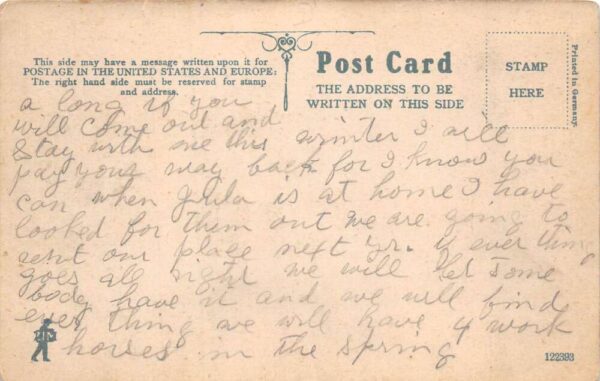 This side may have a message written upon it for
POSTAGE IN THE UNITED STATES AND EUROPE:
The right hand side must be reserved for stamp
and address.
Post Card
THE ADDRESS TO BE
WRITTEN ON THIS SIDE
STAMP
HERE
Printed in Germany
a long if you
will come out and
stay with me this winter I will
pay your way back for I know you
can when Jula is at home I have
looked for them out we are going to
rent our place next yr. if ever thing
goes all right we will let some
body have it and we will find
ever thing we will have 4 work
horses in the spring
122393